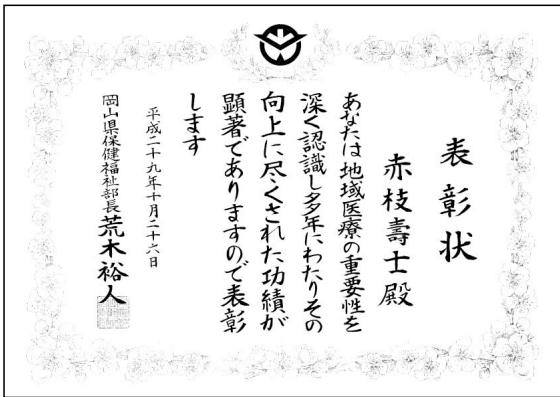 表彰状
赤枝壽士殿
あなたは地域医療の重要性を
深く認識し多年にわたりその
向上に尽くされた功績が
顕著でありますので表彰
します
平成二十九年十月二十六日
岡山県保健福祉部長 荒木裕人